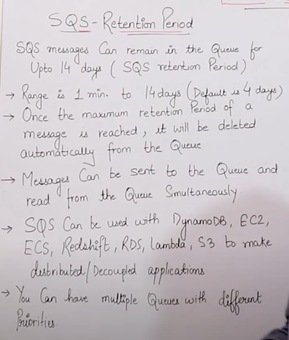 SQS - Retention Period
SQS messages Can remain in the Queue for
Upto 14 days ( SQS retention Period )
→ Range is 1 min. to 14 days (Default is 4 days)
→ Once the maximum retention Period of a
message is reached, it will be deleted
automatically from the Queue
→ Messages Can be sent to the Queue and
read from the Queue Simultaneously
→ SQS Can be used with DynamoDB, EC2,
ECS, Redshift, RDS, Lambda, S3 to make
distributed/Decoupled applications
→ You Can have multiple Queues with different
Priorities.